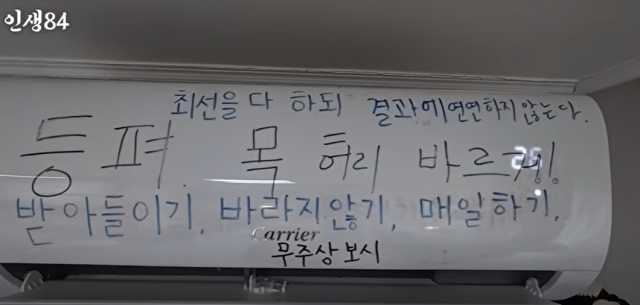 인생84
최선을 다 하되 결과에 연연하지 않는다.
등 펴. 목 허리 바르게!
받아들이기. 바라지 않기, 매일하기.
Carrier
무주상 보시